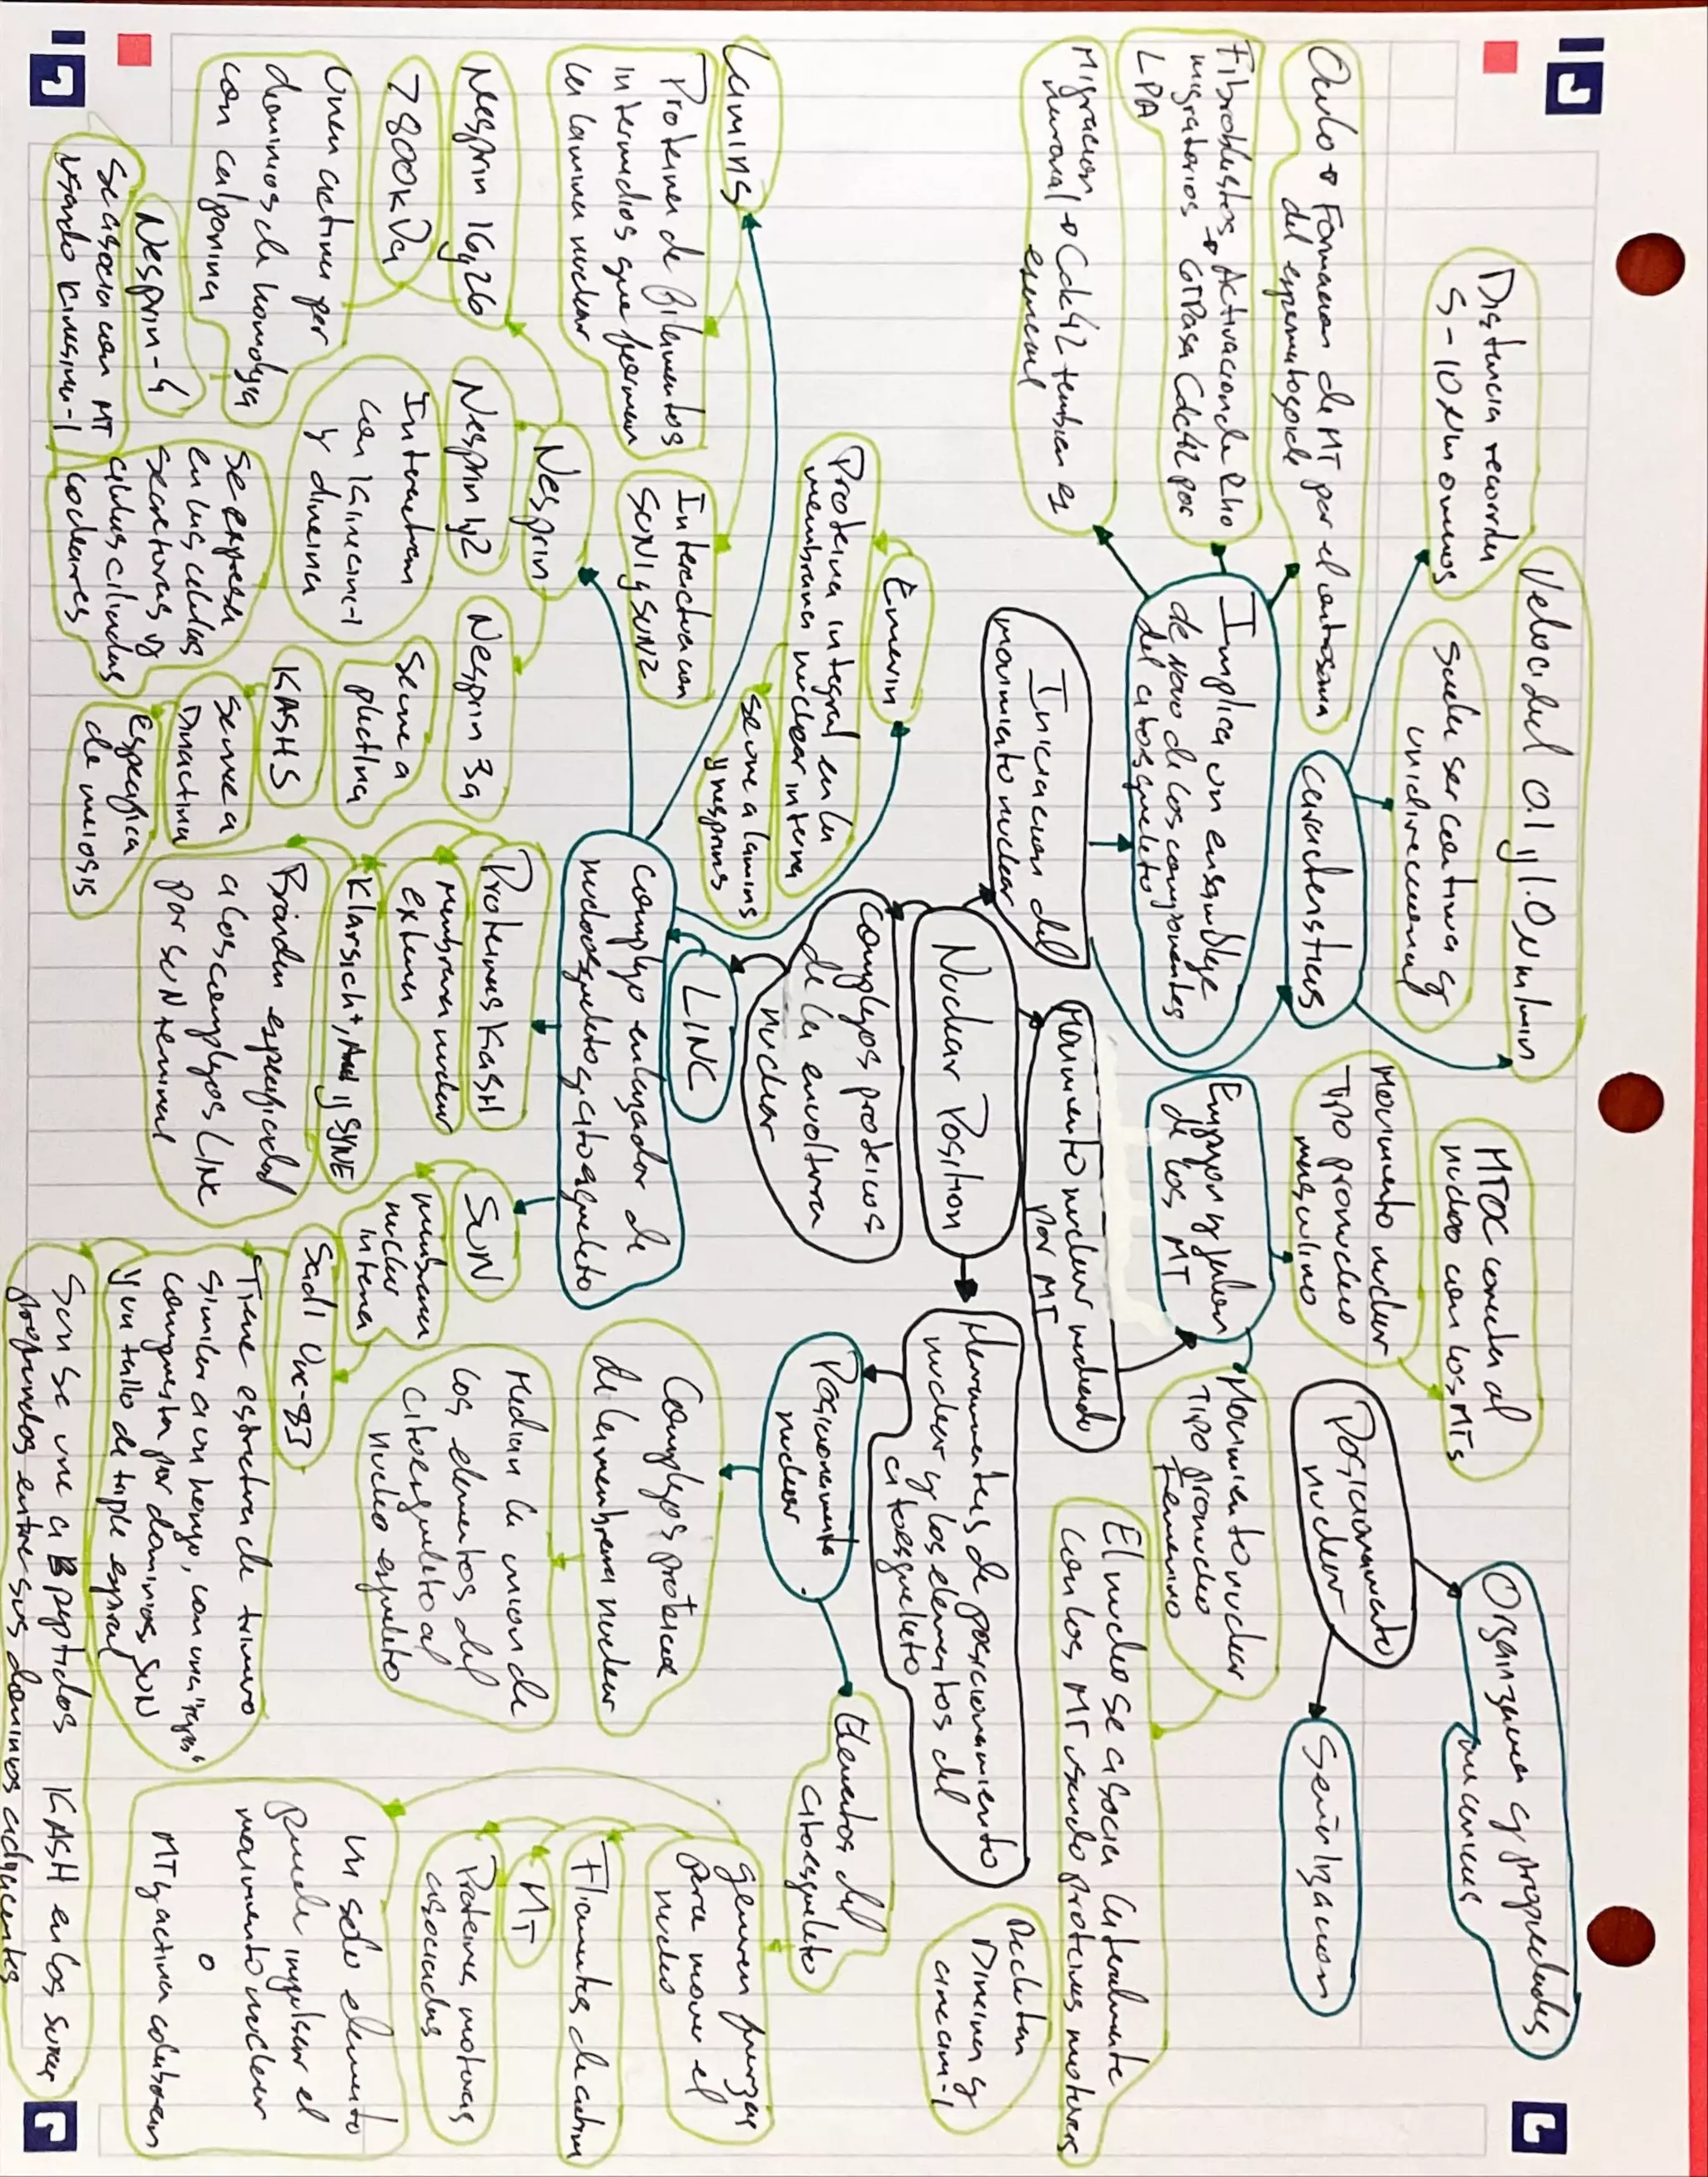 Velocidad 0.1 y 1.0 μm/min
Distancia recorrida
5-10 μm o menos
Suele ser continua y
unidireccional
Características
Ovulo → Formacion de MT por el centrosoma
del espermatozoide
Fibroblastos → Activacion de Rho
migratorios GTPasa Cdc42 por
LPA
Migracion → Cdc42 tambien es
neuronal esencial
Implica un ensamblaje
de novo de los componentes
del citoesqueleto
Iniciacion del
movimiento nuclear
MTOC conecta al
nucleo con los MTs
Movimiento nuclear
Tipo pronucleo
masculino
Empujon y jalon
de los MT
Movimiento nuclear
Tipo pronucleo
femenino
Movimiento nuclear mediado
por MT
El nucleo se asocia lateralmente
con los MT usando proteinas motoras
Reclutan
Dineina y
cinecina-1
Posicionamiento
nuclear
Organizacion y propiedades
mecanicas
Señalizacion
Nuclear Position
Herramientas de posicionamiento
nuclear y los elementos del
citoesqueleto
Posicionamiento
nuclear
Elementos del
citoesqueleto
Generan fuerzas
para mover el
nucleo
Filamentos de actina
MT
Proteinas motoras
asociadas
Un solo elemento
puede impulsar el
movimiento nuclear
o
MT y actina colaboran
Complejos proteicos
de la membrana nuclear
Median la union de
los elementos del
citoesqueleto al
nucleo esqueleto
Complejos proteicos
de la envoltura
nuclear
LINC
Complejo enlazador de
nucleoesqueleto y citoesqueleto
Emerin
Proteina integral en la
membrana nuclear interna
Se une a lamins
y nesprins
Lamins
Proteina de filamentos
intermedios que forman
la lamina nuclear
Interactuan con
SUN1 y SUN2
Nesprin
Nesprin 1G y 2G
7800kDa
Unen actina por
dominios de homologia
con calponina
Nesprin 1 y 2
Interactuan
con Kinecina-1
y dineina
Nesprin 3a
Se une a
plectina
Nesprin-4
Se asocia con MT
usando Kinesina-1
Se expresa
en las celulas
secretoras y
celulas ciliadas
cocleares
KASH5
Se une a
Dinactina
Especifica
de meiosis
Proteinas KASH
Membrana nuclear
externa
Klarsicht, y SYNE
Brindan especificidad
a los complejos LINC
por SUN terminal
SUN
membrana
nuclear
interna
Sad1 Unc-83
Tiene estructura de trimero
similar a un hongo, con una "tapa"
compuesta por dominios SUN
y un tallo de triple espiral
Sun se une a 3 peptidos KASH en los surcos
profundos entre sus dominios adyacentes